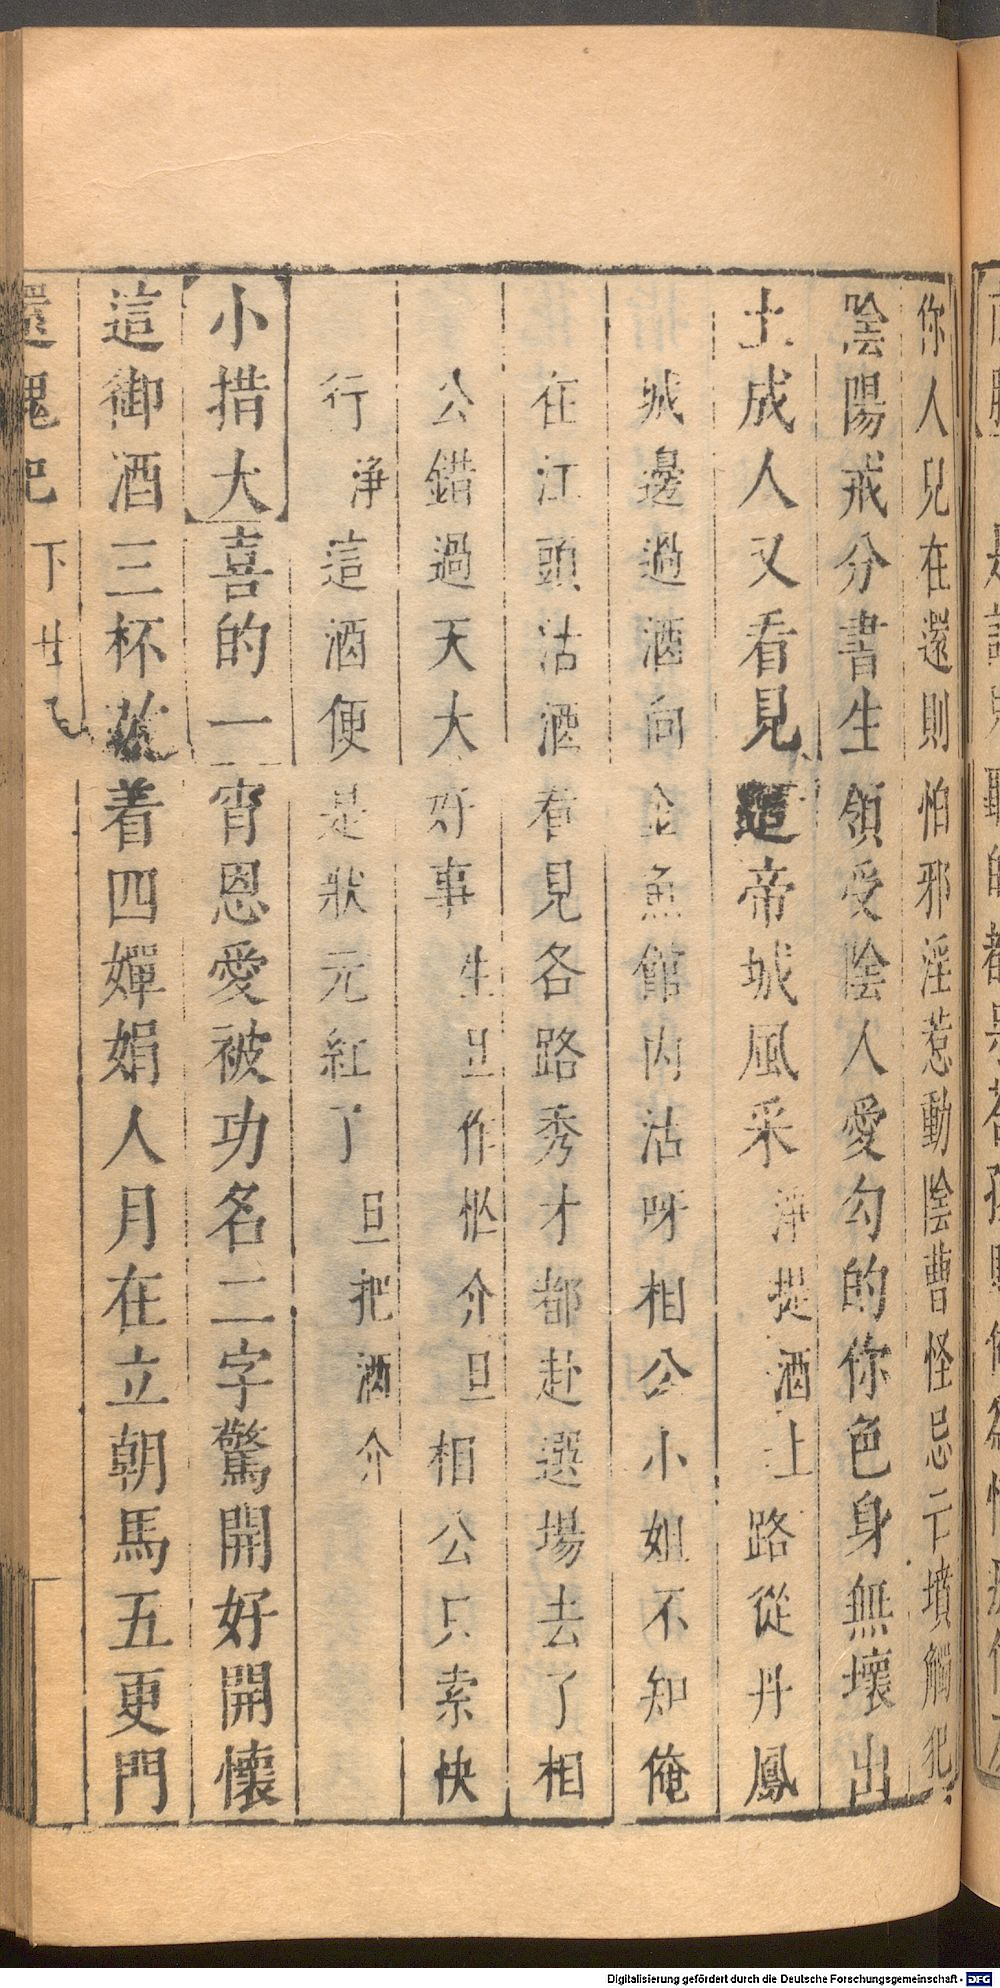 你人兒在還則怕邪淫惹動陰曹怪忌亡墳觸犯
陰陽戒分書生領受陰人愛勾的你色身無壞出
土成人又看見這帝城風采 淨提酒上 路從丹鳳
城邊過酒向金魚館内沽呀相公小姐不知俺
在江頭沽酒看見各路秀才都赴選場去了相
公錯過天大好事 生旦作忙介 旦 相公只索快
行 淨 這酒便是狀元紅了 旦把酒介
小措大 喜的一宵恩愛被功名二字驚開好開懷
這御酒三杯放着四嬋娟人月在立朝馬五更門
還魂記 下 廿
Digitalisierung gefördert durch die Deutsche Forschungsgemeinschaft - DFG